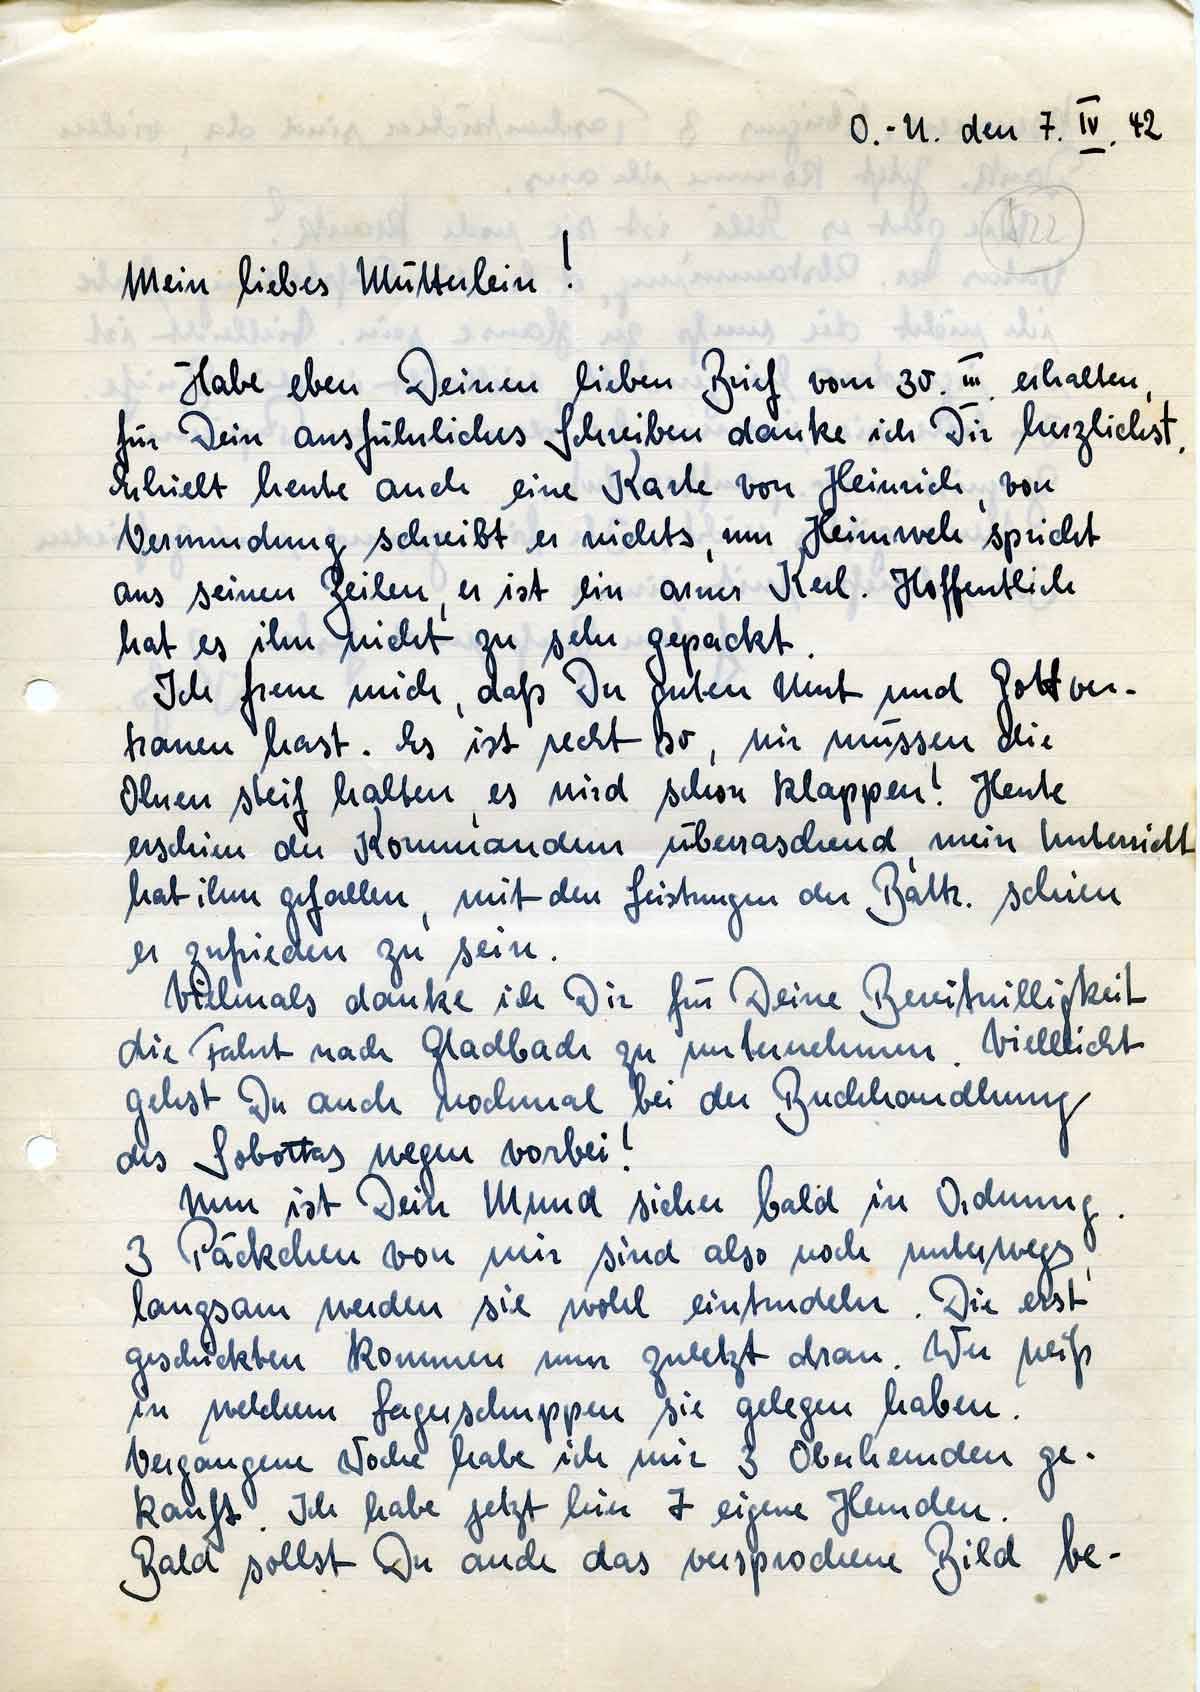 O.-U. den 7. IV. 42
Mein liebes Mütterlein!
Habe eben Deinen lieben Brief vom 30. III. erhalten,
für Dein ausführliches Schreiben danke ich Dir herzlichst.
Erhielt heute auch eine Karte von Heinrich, von
Verwundung schreibt er nichts, nur Heimweh spricht
aus seinen Zeilen, er ist ein armer Kerl. Hoffentlich
hat es ihn nicht zu sehr gepackt.
Ich freue mich, daß Du guten Mut und Gottver-
trauen hast. Es ist recht so, wir müssen die
Ohren steif halten, es wird schon klappen! Heute
erschien der Kommandeur überraschend, mein Unterricht
hat ihm gefallen, mit den Leistungen der Battr. schien
er zufrieden zu sein.
Vielmals danke ich Dir für Deine Bereitwilligkeit
die Fahrt nach Gladbach zu unternehmen. Vielleicht
gehst Du auch nochmal bei der Buchhandlung
des Sobottas wegen vorbei!
Nun ist Dein Mund sicher bald in Ordnung.
3 Päckchen von mir sind also noch unterwegs,
langsam werden sie wohl eintrudeln. Die erst
geschickten kommen nun zuletzt dran. Wer weiß
in welchem Lagerschuppen sie gelegen haben.
Vergangene Woche habe ich mir 3 Oberhemden ge-
kauft. Ich habe jetzt hier 7 eigene Hemden.
Bald sollst Du auch das versprochene Bild be-